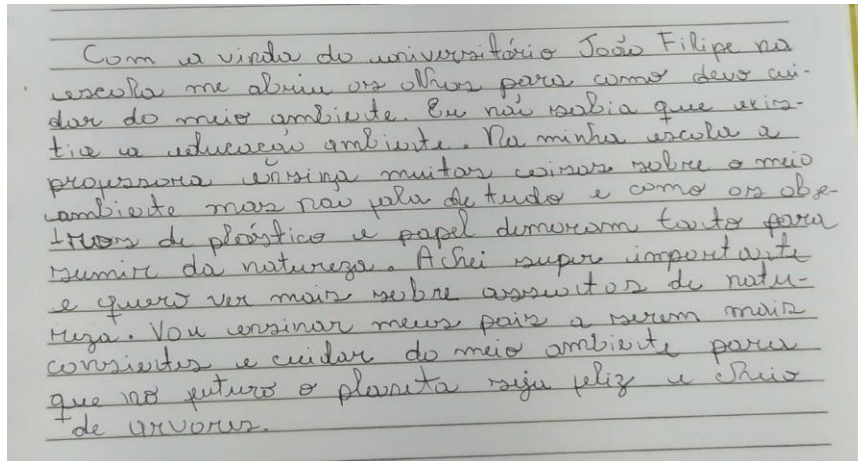 Com a vinda do universitário João Filipe na
escola me abriu os olhos para como devo cui-
dar do meio ambiente. Eu não sabia que exis-
tia a educação ambiente. Na minha escola a
professora ensina muitas coisas sobre o meio
ambiente mas não fala de tudo e como os obje-
tivos de plástico e papel demoram tanto para
sumir da natureza. Achei super importante
e quero ver mais sobre assuntos de natu-
reza. Vou ensinar meus pais a serem mais
consientes e cuidar do meio ambiente para
que no futuro o planeta seja feliz e cheio
de arvores.